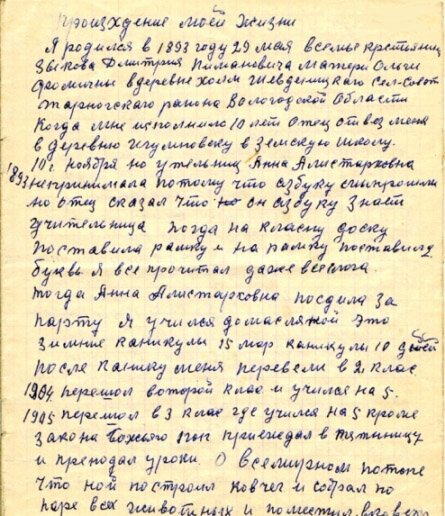 Произждение моей жизни
Я родился в 1893 году 29 мая всемье крестянина
Зыкова Дмитрия Пимановича матери Ольги
Фоминичны вдеревне холм Шевденицкаго Сел-Совет
Тарногского района Вологодской Области
Когда мне исполнило 10 лет отец отвез меня
в деревню Игумновску в Земскую школу.
10го ноября но учельниц Анна Алистарховна
1893 непринимала потому что азбуку спипрошли
но отец сказал что он азбуку знает
учительница тогда на класну доску
поставила рамку и на рамку поставила
буквы я все прочитал даже вселога.
тогда Анна Алистарховна посдила за
парту Я учился домасляной это
зимние каникулы 15 мар каникули 10 дней
после канику меня перевели в 2 клас
1904 перешол второй клас и учился на 5.
1905 перешол в 3 клас где учился на 5 кроме
закона божьяго поп приежедал в пятницу
и преподал уроки. О всемирном потопе
что ной построил ковчег и собрал по
паре всех животных и поместил